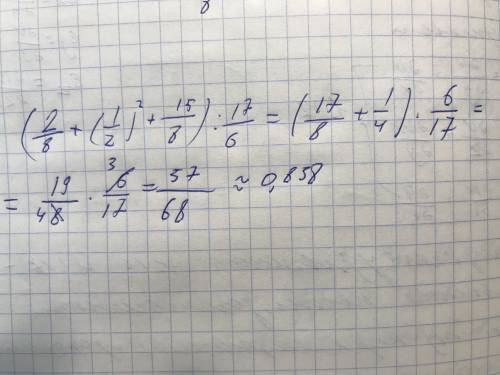 (2/8 + (1/2)² + 15/8) : 17/6 = (17/8 + 1/4) · 6/17 =
= 19/4̶8̶ · 3 6̸/17 = 57/68 ≈ 0,838